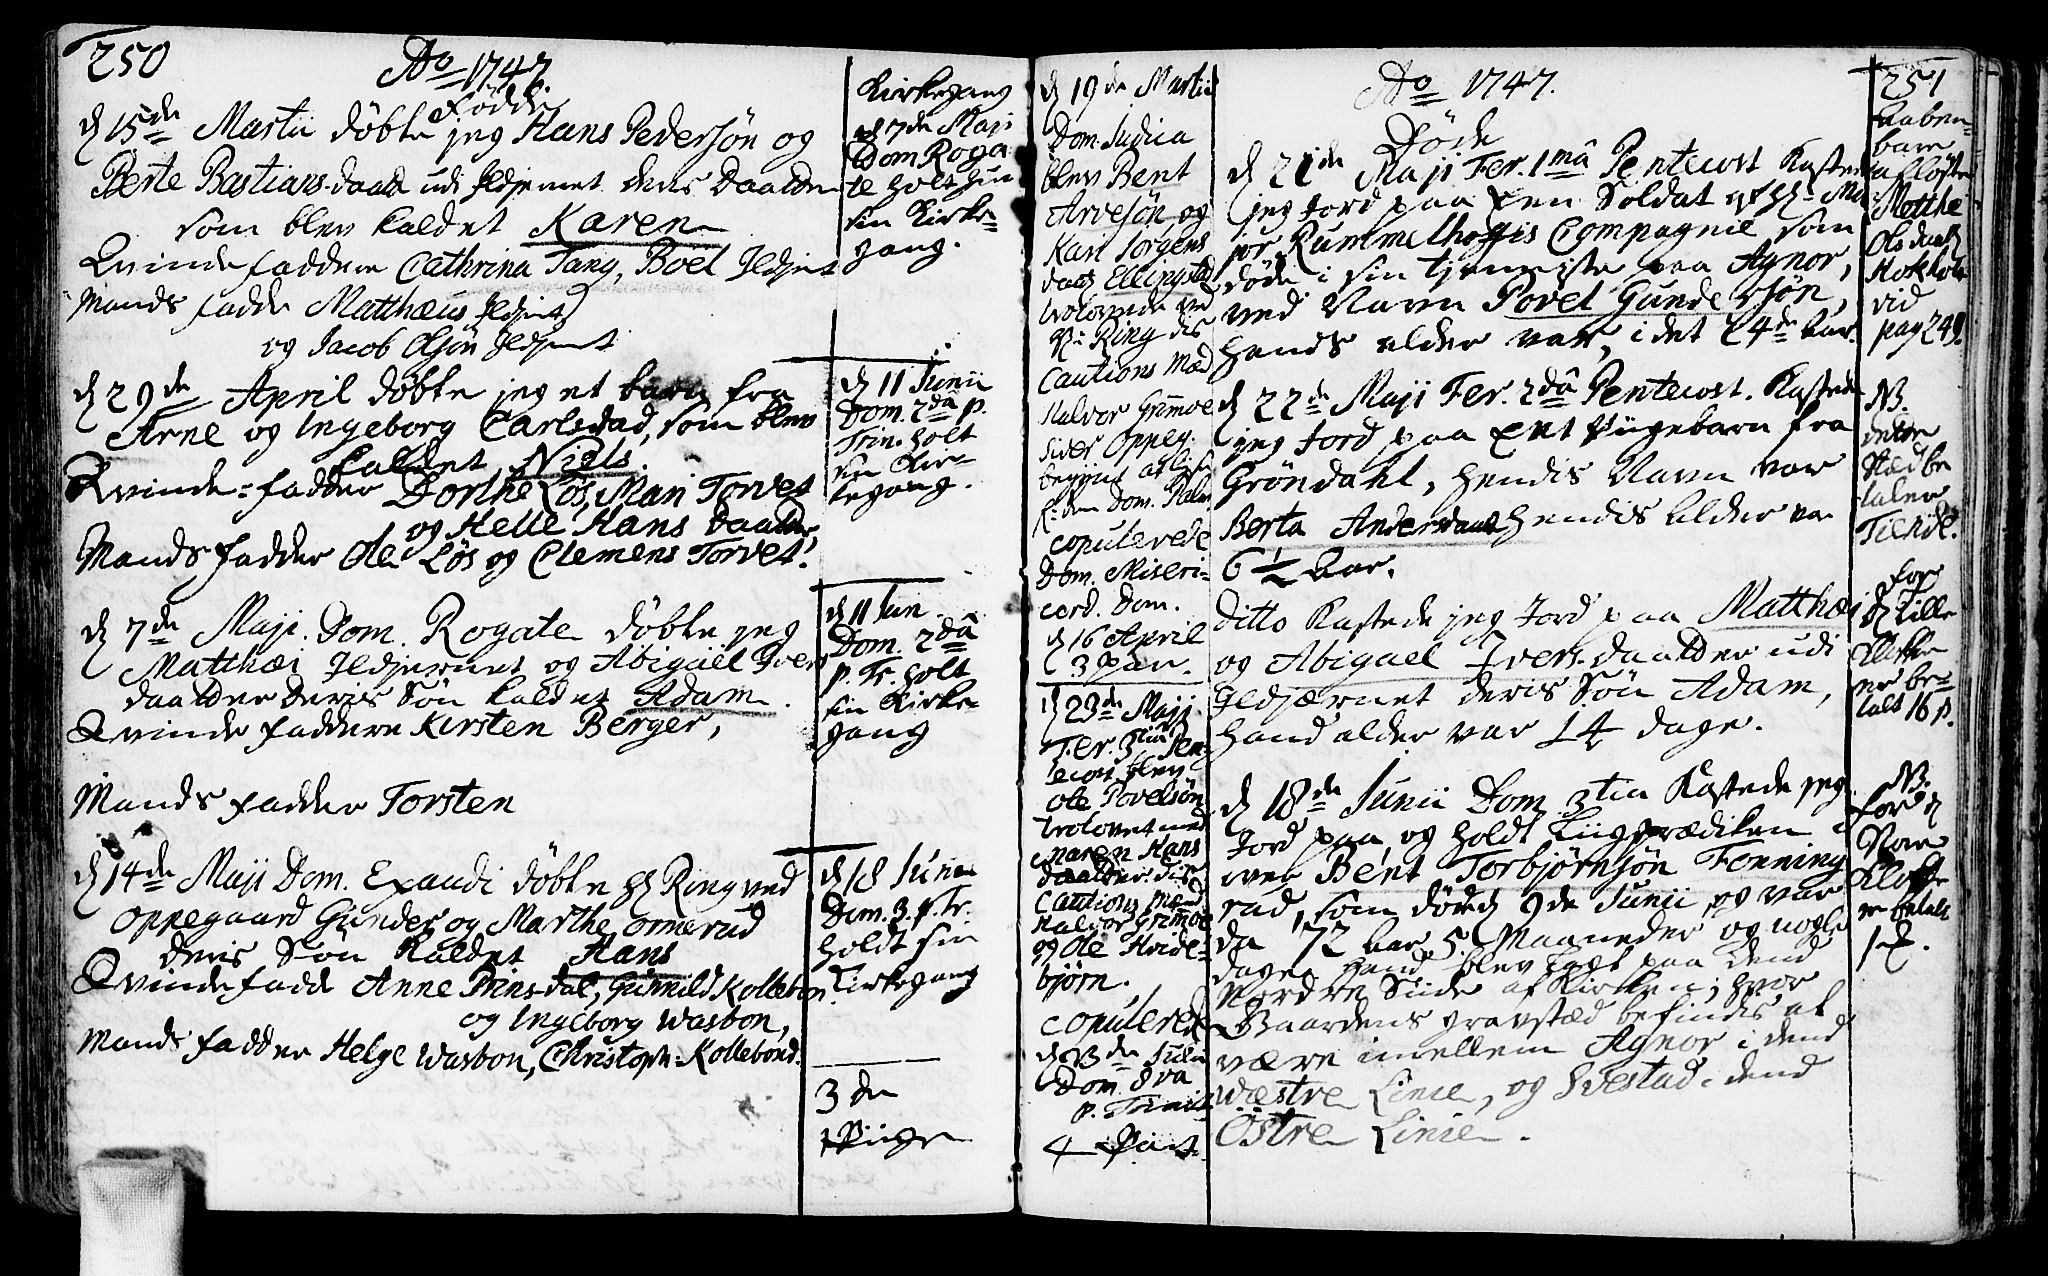 250
Ao 1747.
Födde
d 15de Martii döbte jeg Hans Pedersøn og
Berte Bastians daatt udi Ildjernet deris Daatter
som blev kaldet Karen
Qvinde faddere Cathrina Tang, Boel Ildjernet
Mands fadde Matthæus Ildjernet
og Jacob Olsøn Ildjernet
d 29de April döbte jeg et barn fra
Arne og Ingeborg Carlsdad, som blev
kaldet Niels.
Qvinde-fadder Dorthe Løs, Mari Torvet
og Helle Hans Daatter,
Mands fadder Ole Løs og Clemens Torvet.
d 7de Maji Dom. Rogate döbte jeg
Matthæi Ildjernet og Abigaël Ivers
daatter deris Søn kaldet Adam.
Qvinde faddere Kirsten Berger,
Mands fadder Torsten
d 14de Maji Dom. Exaudi döbte H Ring ved
Oppegaard Gunder og Marthe Ormerud
deris Søn kaldet Hans
Qvinde fadde Anne Prinsdal, Gunnild Kollebon
og Ingeborg Wasbon,
Mands fadder Helge Wasbon, Christoph: Kollebond.
Kirkegang
d 7de Maji
Dom Roga
te holt hun
sin Kirke-
gang.
d 11 Junii
Dom. 2dâ p.
Trin. holt
sin Kir-
kegang.
d 11 Jun
Dom. 2dâ
p. Tr. holt
sin Kirke-
gang
d 18 Junii
Dom. 3. p. Tr.
holdt sin
Kirkegang
3 de
Piige
d 19de Martii
Dom. Judica
blev Bent
Arvesøn og
Kari Jörgens
daatt Ellingstad
trolovede ved
H: Ring dis
Cautions Mæd
Halvor Grimøe
Siver Oppeg.
Dom. Palm
copulerede
Dom. Miseri-
cord. Dom.
d 16 April
3 Par.
d 23de Maji
Fer. 3tia Pen-
tecost blev
Ole Povelsøn
trolovet med
Maren Hans
daatter. dis
Cautions Mænd
Halvor Grimøe
og Ole Hvide-
bjørn.
copulerede
Julii
Dom. 8va
p. Trinit
4 Par.
Ao 1747.
Døde
d 21de Maji Fer. 1mâ Pentecost Kastede
jeg Jord paa Een Soldat af H: Ma
jor Rummelhoffis Compagnie som
døde i sin tjenniste paa Agnor,
ved Navn Povel Gundersøn,
hends alder var, i det 24de Aar.
d 22de Maji Fer. 2dâ Pentecost. Kastede
jeg Jord paa Ent Piigebarn fra
Gröndahl, hendis Navn var
Berta Andersdaatt hendis Alder va
6 1/2 Aar.
Ditto Kastede jeg Jord paa Matthæi
og Abigael Ivers daatter udi
Ildjærnet deris Søn Adam,
hand alder var 14 dage.
d 18de Junii Dom 3tia Kastede jeg
Jord paa, og holdt Liigprædiken
over Bent Torbjørnsøn Fonning
rud, som døde d 9de Junii og var
da 72 Aar 5 Maaneder og nogle
dage. Hand blev lagt paa dend
Nordre Siide af Kirken, hvor
Gaardens gravstæd befindis at
være imellem Agnor i dend
Westre Linie, og Svestad i dend
Östre Linie.
251
Aaben-
bare
afløste
Matthe
Ols daatt
Hokholt
vid
pag 249.
NB.
dette
stæd be
taler
Tiende.
for
d Lille
Klokke
er be-
talt 16 s.
NB.
for d
Store
Klokke
er betalt